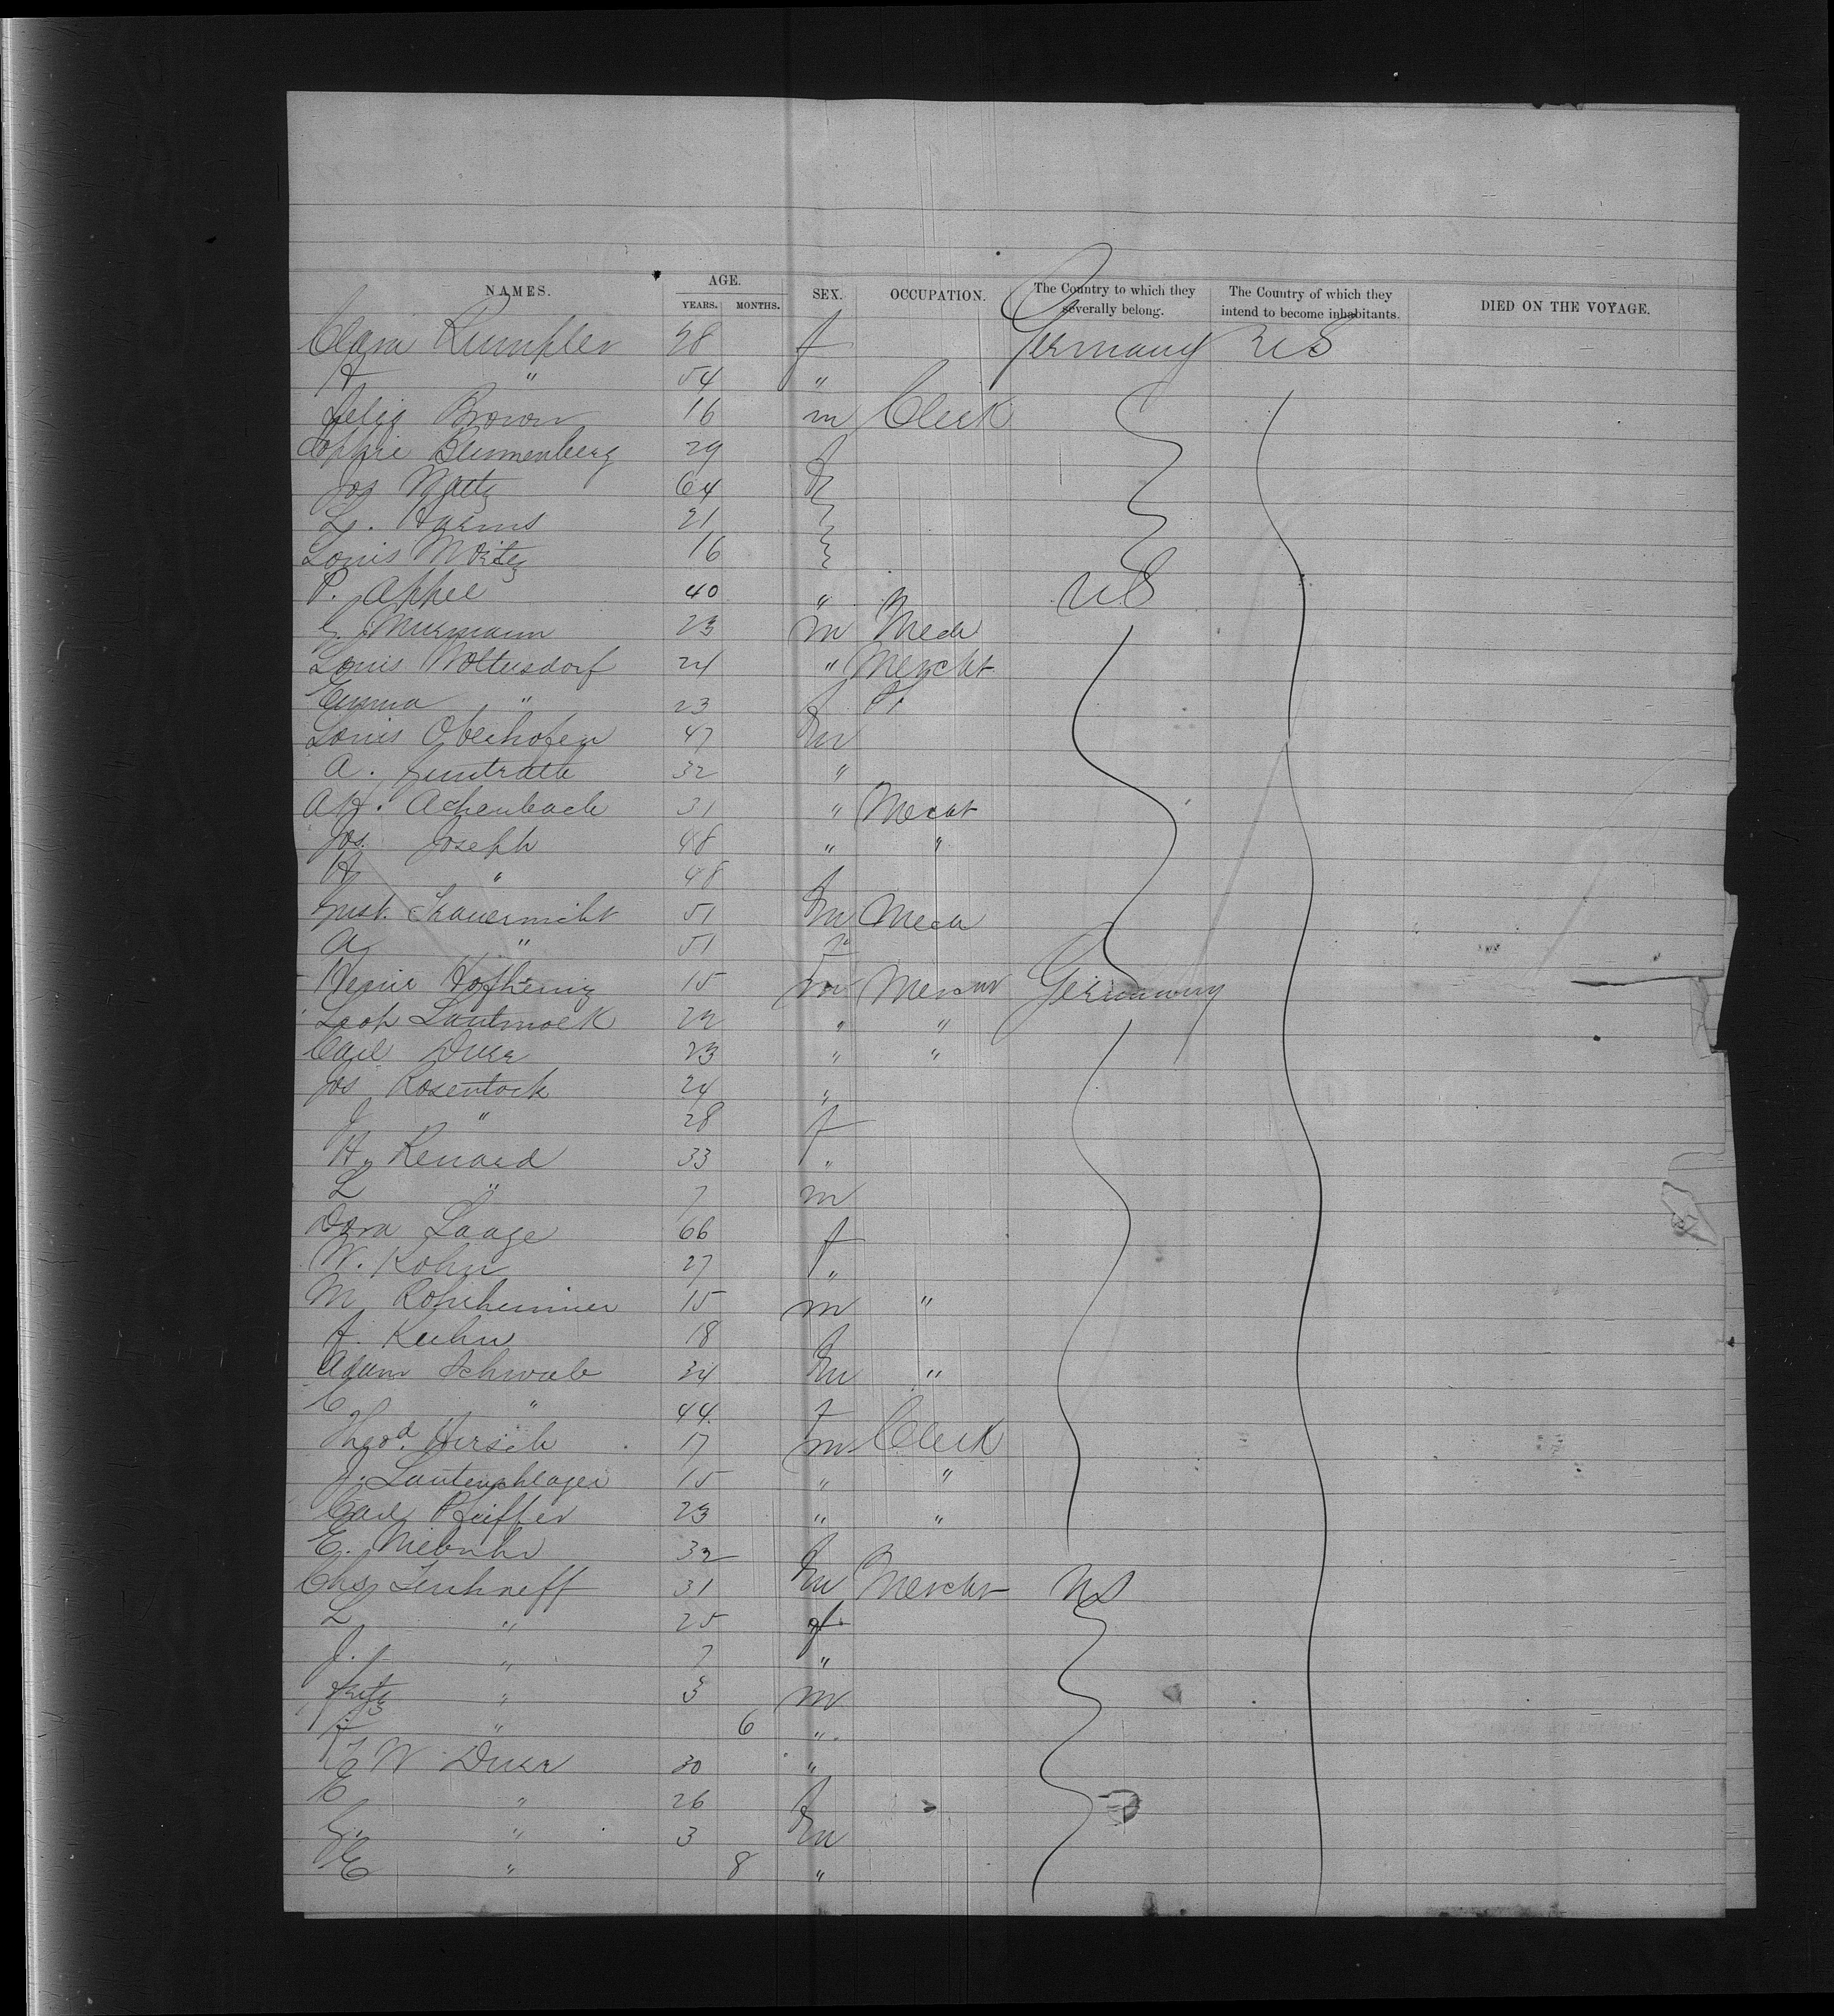 NAMES. AGE. SEX. OCCUPATION. The Country to which they severally belong. The Country of which they intend to become inhabitants. DIED ON THE VOYAGE.
YEARS. MONTHS.
Clara Rumpler 58 f Germany US
A " 54 "
Felix Brown 16 m Clerk
Sophie Blumenberg 29 f
Jos 64
L. Harms 21
Louis Moritz 16
P. Appel 40 " US
G. Murmann 23 m Mech
Louis Woltersdorf 24 " Mercht
Emma " 23 f
Louis Oberhofer 47 m
A. 32 "
A H. Achenbach 31 " Mercht
Jos. Joseph 48 " "
H " 48 f
Gust. 51 m Mech
A " 51 f
15 m Germany
Leop 22 " "
Carl Duer 23 " "
Jos Rosentock 24 "
J " 28 f
H. Renard 33 "
L " 7 m
Dora Laage 66 f
W. Kohn 27 "
M Rohrheimer 15 m "
F. Kuhn 18 f
Adam Schwab 34 m "
C " 44. f
Theod. Hirsch 17 m Clerk
J. Lautenschlager 15 " "
Carl Pfeiffer 23 " "
E. Niebuhr 32 f
Chs 31 m Mercht US
L " 25 f
J. " 7 "
Fritz " 3 m
F. " 6 "
C W Duer 30 "
E " 26 f
G. " 3 m
E " 8 "